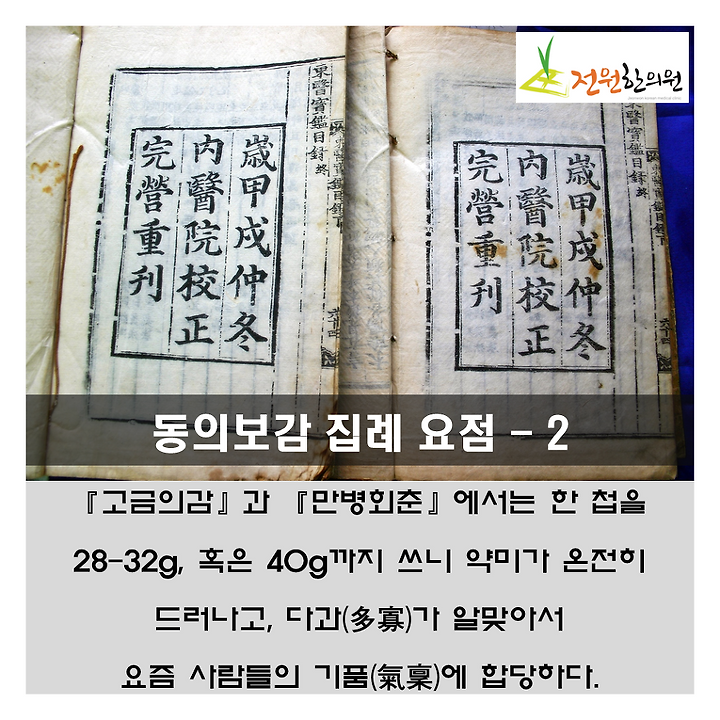 전원한의원
東醫寶鑑目録終
歲甲戌仲冬
內醫院校正
完營重刊
東醫寶鑑目録終
歲甲戌仲冬
內醫院校正
完營重刊
동의보감 집례 요점 - 2
『고금의감』과 『만병회춘』에서는 한 첩을
28-32g, 혹은 40g까지 쓰니 약미가 온전히
드러나고, 다과(多寡)가 알맞아서
요즘 사람들의 기품(氣稟)에 합당하다.